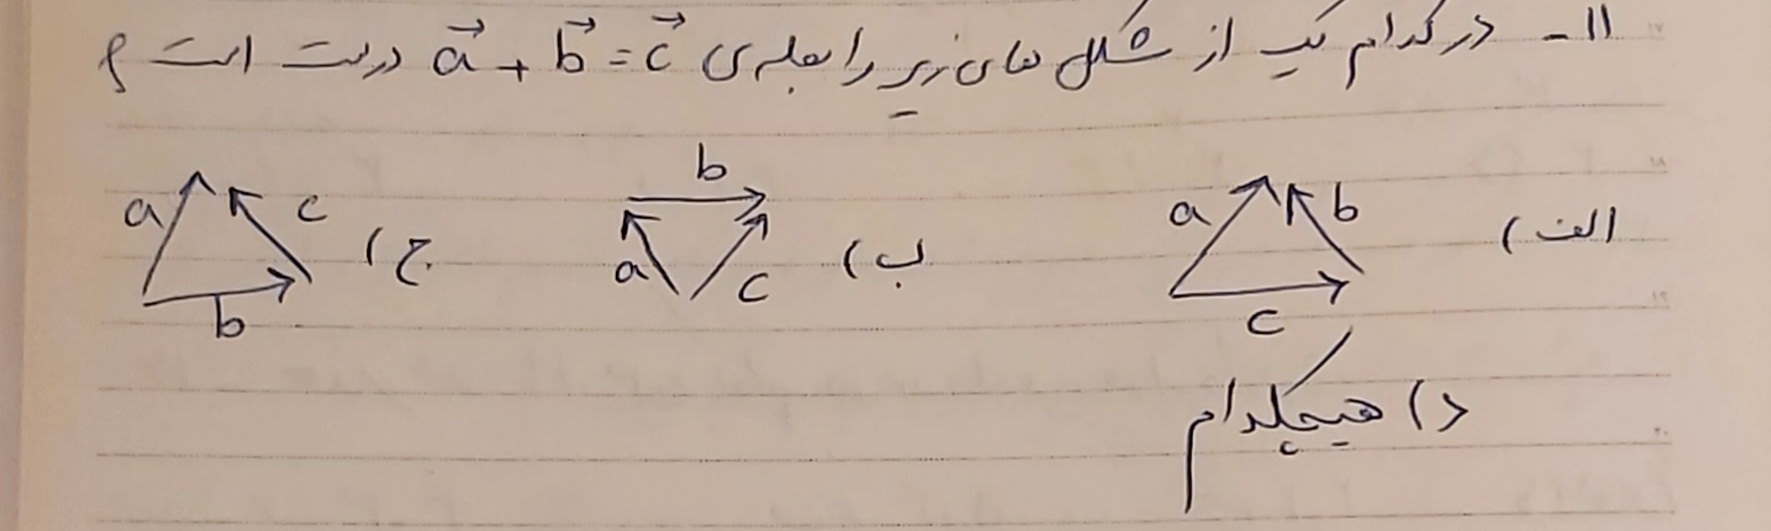 ۱۱- در کدام یک از شکل های زیر رابطه ی a⃗ + b⃗ = c⃗ درست است ؟
الف) a b c
ب) b a c
ج) a c b
د) هیچکدام